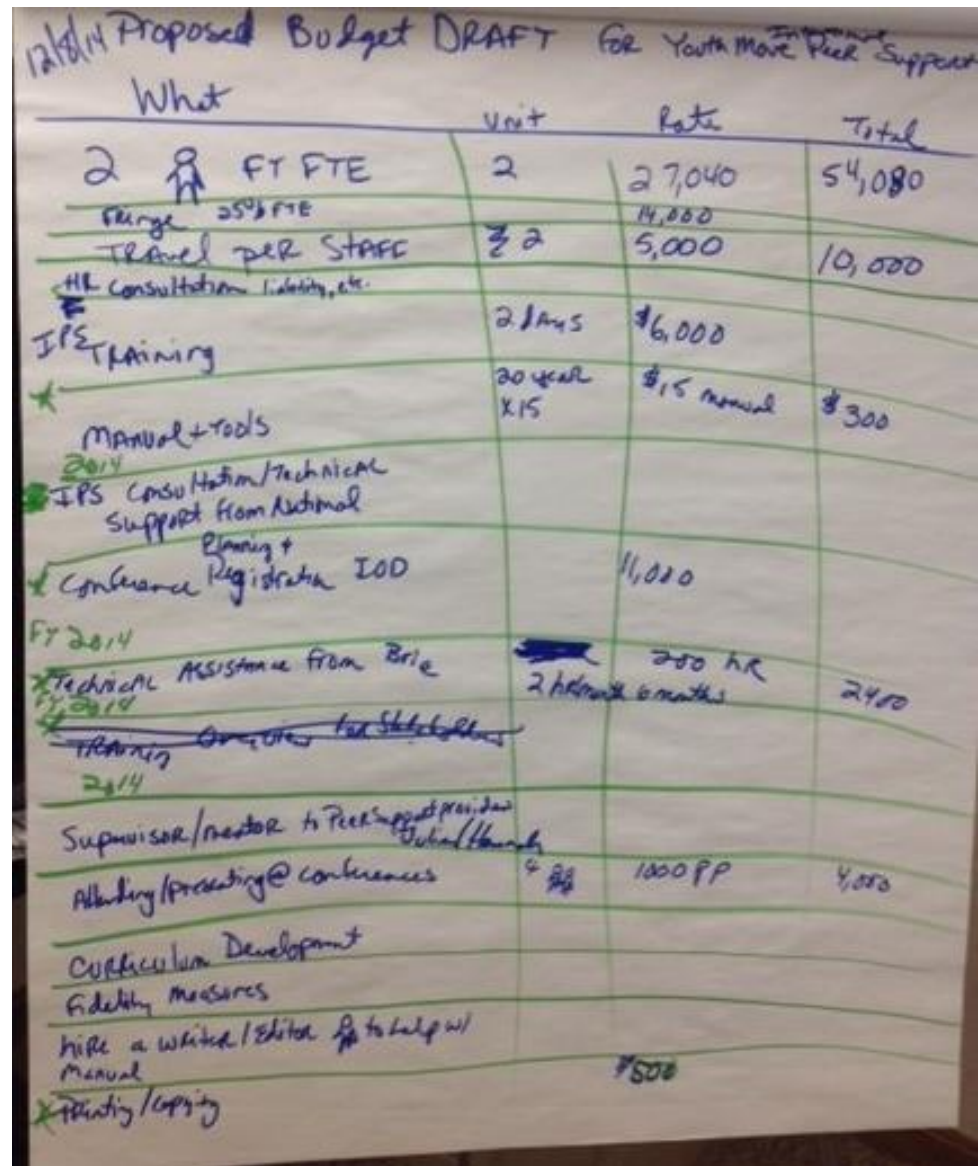 12/8/14 Proposed Budget DRAFT for Youth Move Intensive Peer Support
What Unit Rate Total
2 FT FTE 2 27,040 54,080
Fringe 25% FTE 14,000
Travel per Staff 2 5,000 10,000
HR Consultation liability, etc.
IPS Training 2 days $6,000
Manual + Tools 20 year x15 $15 manual $300
2014
IPS Consultation/Technical
Support from National
Planning +
Conference Registration IOD 11,000
FY 2014
Technical Assistance from Brie 200 hr
2 hr/month 6 months 2400
FY 2014
Training Overview for Stakeholders
2014
Supervisor/mentor to Peer Support provider
Julia/Hannah
Attending/presenting @ conferences 4 1000 PP 4,000
Curriculum Development
Fidelity Measures
hire a writer/Editor to help w/
Manual
$500
Printing/copying